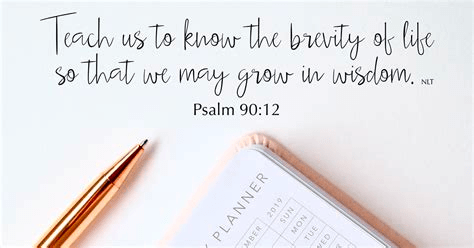 Teach us to know the brevity of life
so that we may grow in wisdom. NLT
Psalm 90:12
Y PLANNER
2019
SUN
MON
TUE
WED